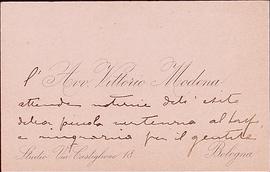 l' Avv. Vittorio Modena
attende notizie dell' esito
della piccola
e ringrazia per il gentile
Studio Via Castiglione 18 Bologna